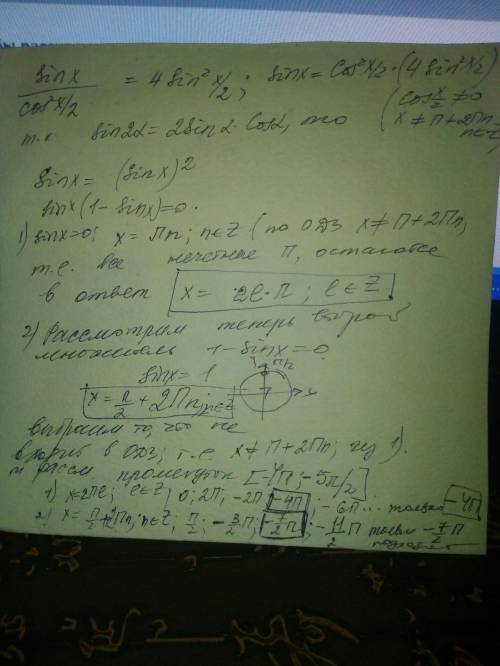 sinx / cos²x/2 = 4 sin² x/2 ; sinx = cos²x/2 · (4 sin²x/2)
(cos x/2 ≠ 0
x ≠ π + 2πn
n∈Z)
т.к. sin2α = 2sinα·cosα, то
sinx = (sinx)²
sinx(1 - sinx) = 0.
1) sinx=0; x = πn; n∈Z (по ОДЗ x≠π+2πn,
т.е. все нечетные π, остаются
в ответ x = 2ℓ·π ; ℓ∈Z
2) Рассмотрим теперь второй
множитель 1 - sinx = 0
sinx = 1
π/2
x
x = π/2 + 2πn; n∈Z
выбраем то, что не
в ОДЗ; т.е. x≠π+2πn; 1).
рассм промежуток [-4π; -5π/2]
1) x=2πℓ; ℓ∈Z; 0; 2π; -2π; -4π; -6π... только -4π
2) x = π/2 + 2πn; n∈Z; π/2; -3/2π; -7/2π; -11/2π только -7/2π
подходит